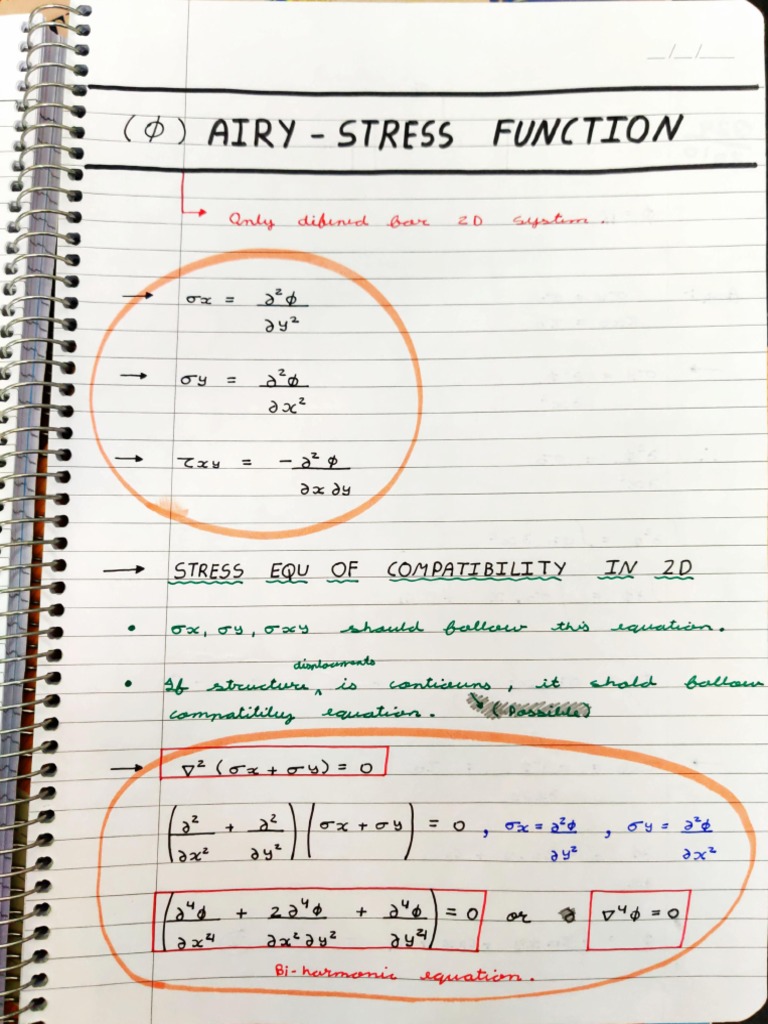 __/__/____
(ϕ) AIRY - STRESS FUNCTION
Only difined for 2D system.
→ σx = ∂²ϕ / ∂y²
→ σy = ∂²ϕ / ∂x²
→ τxy = -∂²ϕ / ∂x ∂y
→ STRESS EQU OF COMPATIBILITY IN 2D
• σx, σy, σxy should follow this equation.
displacements
• If structure ‸ is contiouns, it shold follow
compatitiliy equation. (Possible)
→ ∇² (σx + σy) = 0
(∂²/∂x² + ∂²/∂y²) (σx + σy) = 0 , σx = ∂²ϕ/∂y² , σy = ∂²ϕ/∂x²
(∂⁴ϕ/∂x⁴ + 2∂⁴ϕ/∂x²∂y² + ∂⁴ϕ/∂y⁴) = 0 or ∇⁴ϕ = 0
Bi-harmonic equation.